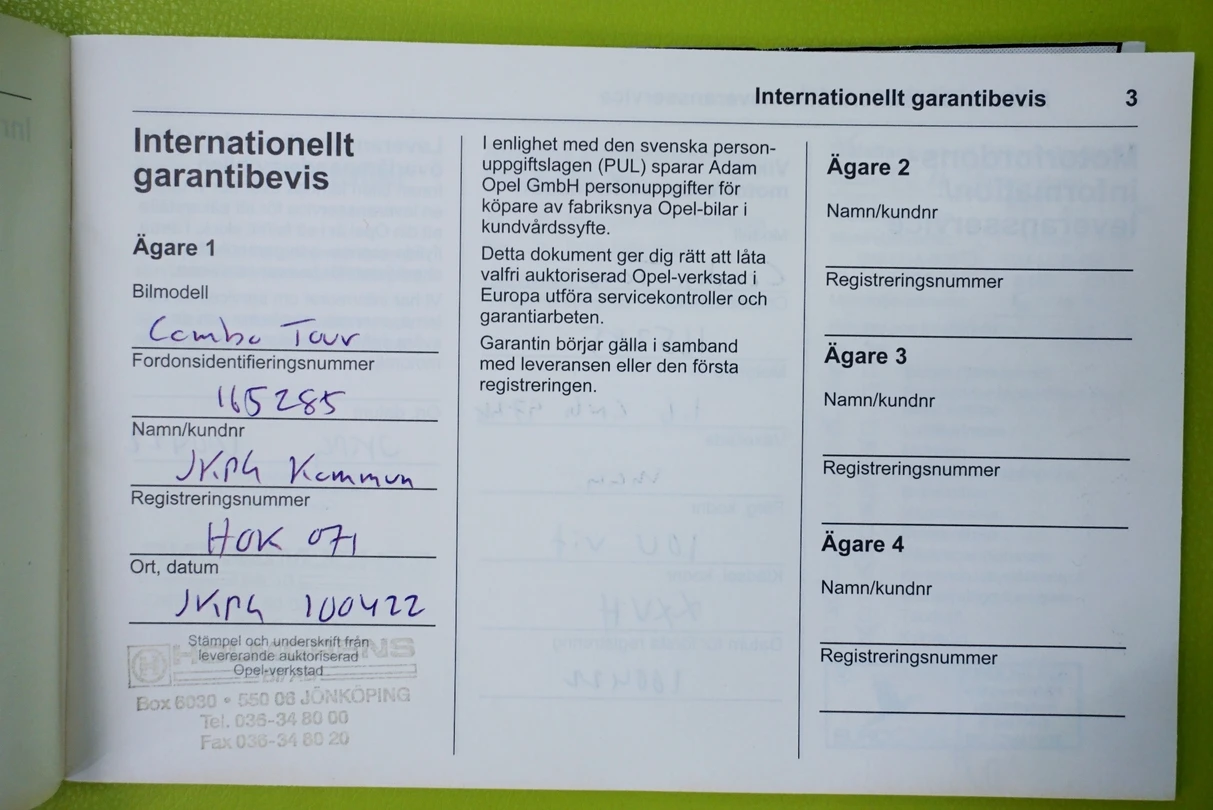 Internationellt garantibevis 3
Internationellt
garantibevis
Ägare 1
Bilmodell
Combo Tour
Fordonsidentifieringsnummer
165285
Namn/kundnr
JKPG Kommun
Registreringsnummer
HOK 071
Ort, datum
JKPG 100422
Stämpel och underskrift från
levererande auktoriserad
Opel-verkstad
Box 6030 • 550 06 JÖNKÖPING
Tel. 036-34 80 00
Fax 036-34 80 20
I enlighet med den svenska person-
uppgiftslagen (PUL) sparar Adam
Opel GmbH personuppgifter för
köpare av fabriksnya Opel-bilar i
kundvårdssyfte.
Detta dokument ger dig rätt att låta
valfri auktoriserad Opel-verkstad i
Europa utföra servicekontroller och
garantiarbeten.
Garantin börjar gälla i samband
med leveransen eller den första
registreringen.
Ägare 2
Namn/kundnr
Registreringsnummer
Ägare 3
Namn/kundnr
Registreringsnummer
Ägare 4
Namn/kundnr
Registreringsnummer